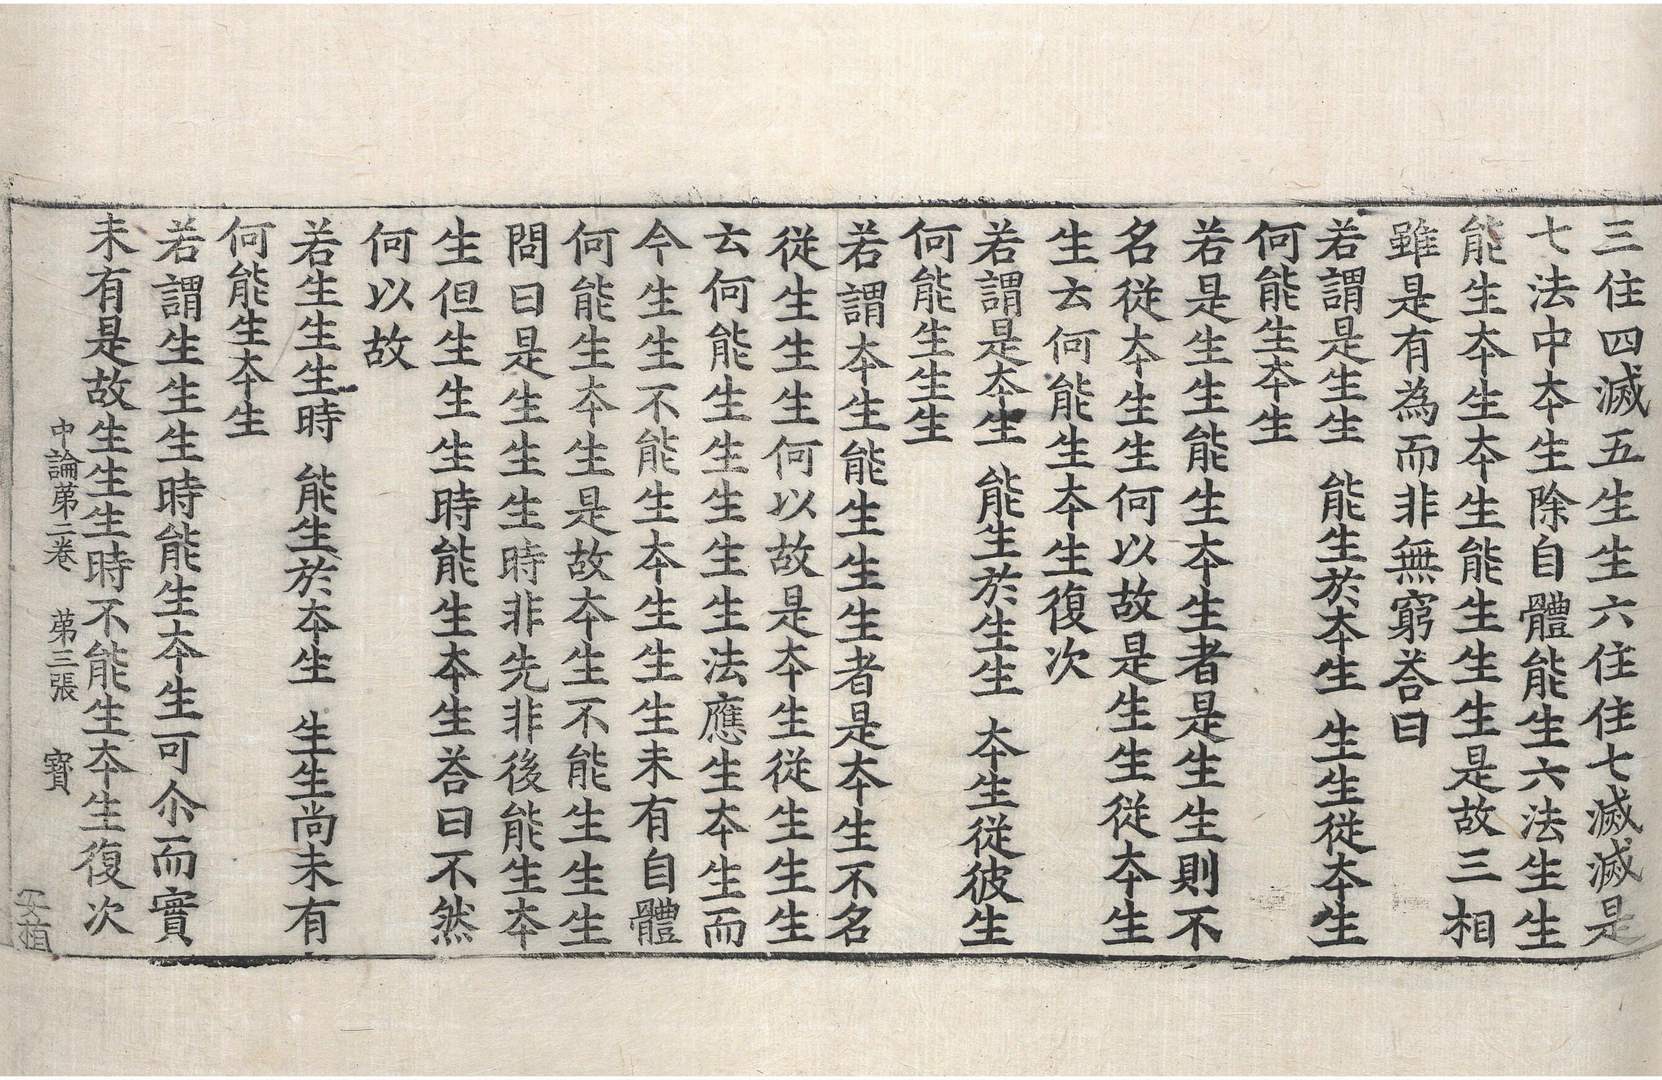 三住四滅五生生六住住七滅滅是
七法中夲生除自體能生六法生生
能生夲生夲生能生生生是故三相
雖是有為而非無窮荅曰
若謂是生生 能生於夲生 生生從夲生
何能生夲生
若是生生能生夲生者是生生則不
名從夲生生何以故是生生從夲生
生云何能生夲生復次
若謂是夲生 能生於生生 夲生從彼生
何能生生生
若謂夲生能生生生者是夲生不名
從生生生何以故是夲生從生生生
云何能生生生生生法應生夲生而
今生生不能生夲生生生未有自體
何能生夲生是故夲生不能生生生
問曰是生生生時非先非後能生夲
生但生生生時能生夲生荅曰不然
何以故
若生生生時 能生於夲生 生生尚未有
何能生夲生
若謂生生生時能生夲生可尒而實
未有是故生生生時不能生夲生復次
中論苐二卷 苐三張 寶